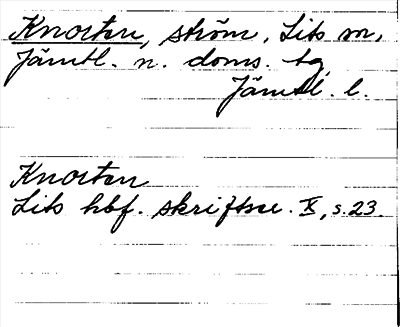 Knorten, ström, Lits sn,
Jämtl. n. doms. tg,
Jämtl. l.
Knorten
Lits hbf. skriftser. X, s. 23.